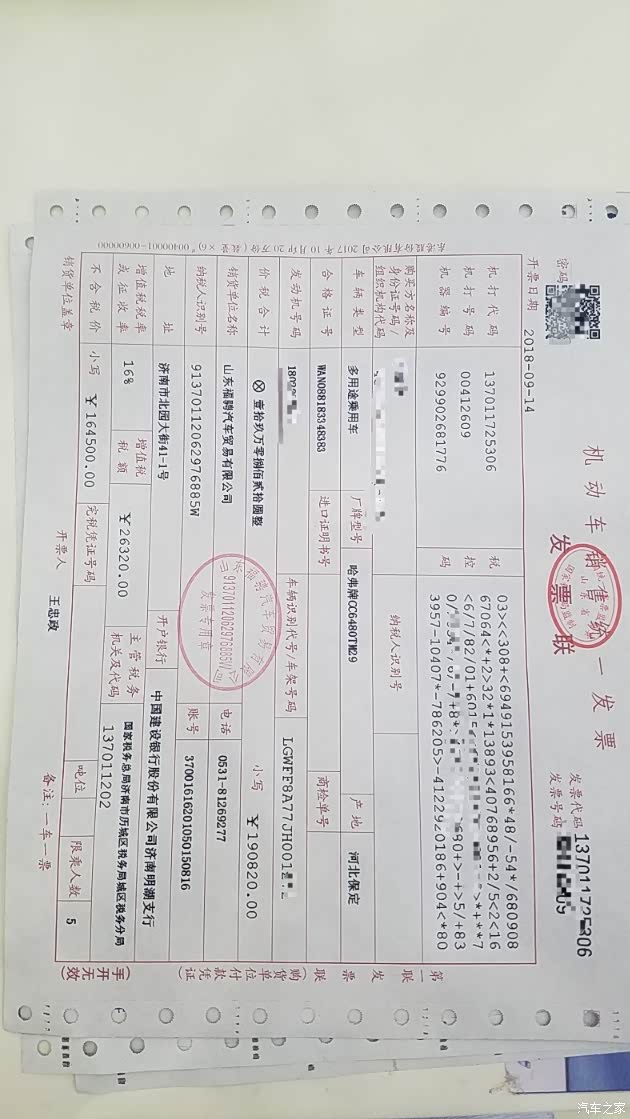 机动车销售统一发票
发票联
发票代码 137011725306
发票号码
开票日期 2018-09-14
机打代码 137011725306
机打号码 00412609
机器编号 929902681776
税控码
03><<308+<6949153958166*48/-54*/680908
67064<*+2>32*1*13893<40768956+2/5<2<16
3957-10407*-786205>-4122920186+904<*80
购买方名称及身份证号码/组织机构代码
纳税人识别号
车辆类型 多用途乘用车 厂牌型号 哈弗牌CC6480TM29 产地 河北保定
合格证号 WAN088183348383 进口证明书号 商检单号
发动机号码 车辆识别代号/车架号码
价税合计 ⊗壹拾玖万零捌佰贰拾圆整 小写 ￥190820.00
销货单位名称 山东福骋汽车贸易有限公司 电话 0531-81269277
纳税人识别号 91370112062976885W 账号 37001616201050150816
地址 济南市北园大街41-1号 开户银行 中国建设银行股份有限公司济南明湖支行
增值税税率或征收率 16% 增值税税额 ￥26320.00 主管税务机关及代码 国家税务总局济南市历城区税务局城区税务分局
137011202
不含税价 小写 ￥164500.00 完税凭证号码 吨位 限乘人数 5
销货单位盖章 开票人 王忠政 备注：一车一票
第
联
发票联
(购货单位付款凭证)
(手开无效)
91370112062976885W
发票专用章
山东省
汽车之家